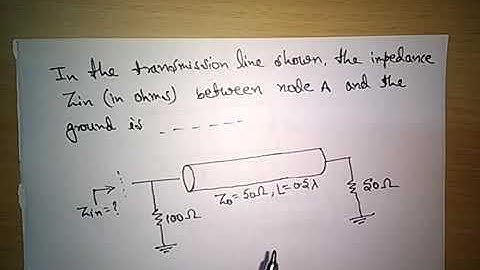 In the transmission line shown, the impedance
Zin (in ohms) between node A and the
ground is _ _ _ _ _ _
Zin=?
100Ω
Z₀=50Ω, L=0.5λ
50Ω